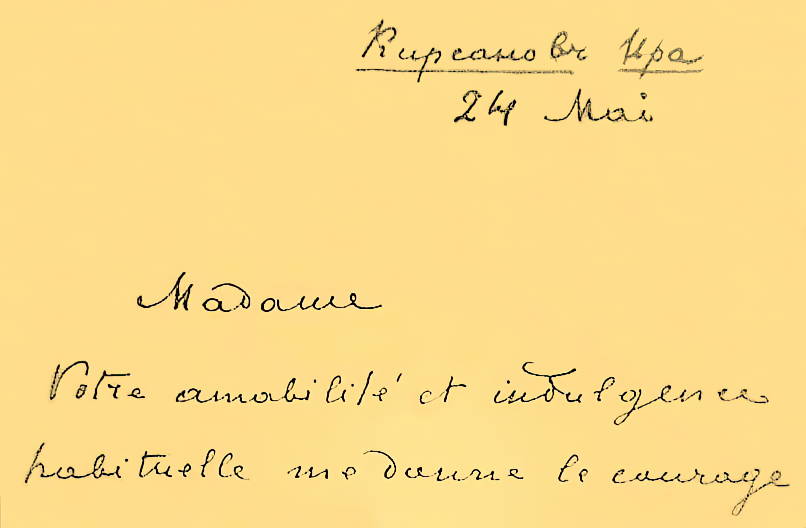 Кирсановъ Ира
24 Mai
Madame
Votre amabilité et indulgence
habituelle me donne le courage